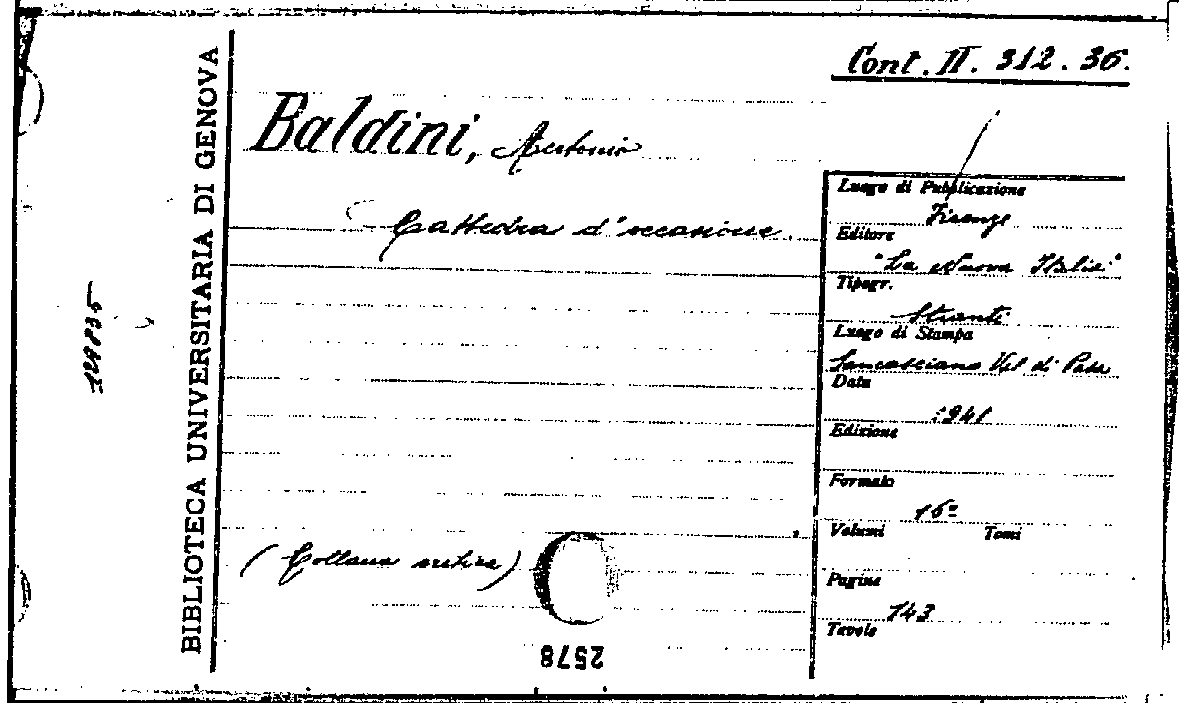 Cont. II. 312. 36.
BIBLIOTECA UNIVERSITARIA DI GENOVA
129835
Baldini, Antonio
Cattedra d'occasione.
(Collana critica)
2578
Luogo di Pubblicazione
Firenze
Editore
"La Nuova Italia"
Tipogr.
Stianti
Luogo di Stampa
Sancasciano Val di Pesa
Data
1941
Edizione
Formato
16º
Volumi Tomi
Pagine
143
Tavole